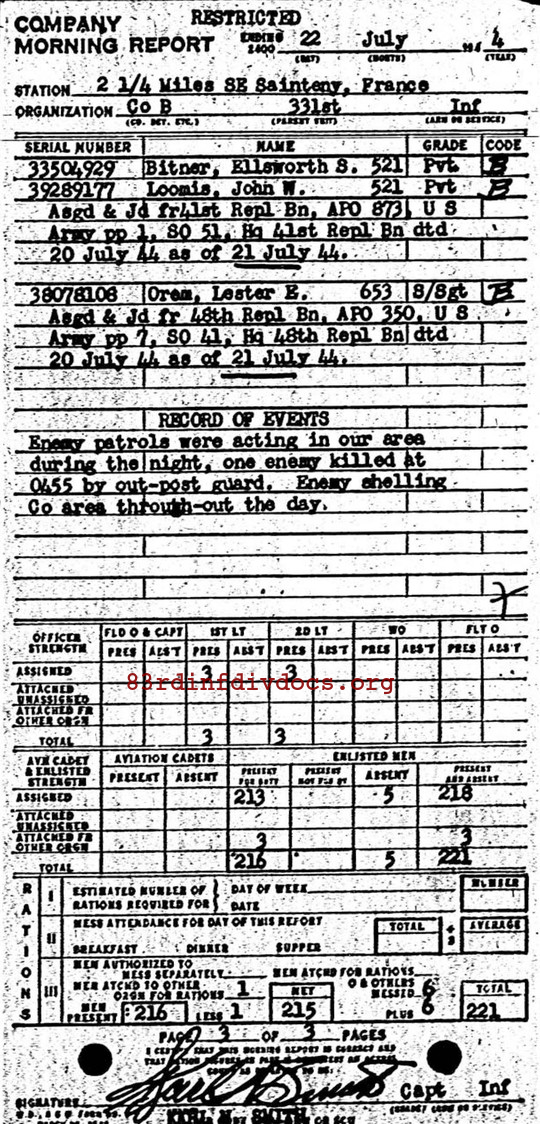 RESTRICTED
COMPANY
MORNING REPORT ENDING 2400 22 July 194 4
(DAY) (MONTH) (YEAR)
STATION 2 1/4 Miles SE Sainteny, France
ORGANIZATION Co B 331st Inf
(CO. DET. ETC.) (PARENT UNIT) (ARM OR SERVICE)
SERIAL NUMBER NAME GRADE CODE
33504929 Bitner, Ellsworth S. 521 Pvt B
39289177 Loomis, John W. 521 Pvt B
Asgd & Jd fr41st Repl Bn, APO 873, U S
Army pp 1, SO 51, Hq 41st Repl Bn dtd
20 July 44 as of 21 July 44.
38078108 Orem, Lester E. 653 S/Sgt B
Asgd & Jd fr 48th Repl Bn, APO 350, U S
Army pp 7, SO 41, Hq 48th Repl Bn dtd
20 July 44 as of 21 July 44.
RECORD OF EVENTS
Enemy patrols were acting in our area
during the night, one enemy killed at
0455 by out-post guard. Enemy shelling
Co area through-out the day.
OFFICER STRENGTH FLD O & CAPT 1ST LT 2D LT WO FLT O
PRES ABS'T PRES ABS'T PRES ABS'T PRES ABS'T PRES ABS'T
ASSIGNED 3 3
83rdinfdivdocs.org
ATTACHED UNASSIGNED
ATTACHED FR OTHER ORGN
TOTAL 3 3
AVN CADET & ENLISTED STRENGTH AVIATION CADETS ENLISTED MEN
PRESENT ABSENT PRESENT FOR DUTY PRESENT NOT FOR DY ABSENT PRESENT AND ABSENT
ASSIGNED 213 5 218
ATTACHED UNASSIGNED
ATTACHED FR OTHER ORGN 3 3
TOTAL 216 5 221
RATIONS
I ESTIMATED NUMBER OF RATIONS REQUIRED FOR DAY OF WEEK DATE NUMBER
II MESS ATTENDANCE FOR DAY OF THIS REPORT TOTAL ÷ 3 AVERAGE
BREAKFAST DINNER SUPPER
III MEN AUTHORIZED TO MESS SEPARATELY MEN ATCHD FOR RATIONS 6
MEN ATCHD TO OTHER ORGN FOR RATIONS 1 NET O & OTHERS MESSED 6 TOTAL
MEN PRESENT 216 LESS 1 215 PLUS 6 221
PAGE 3 OF 3 PAGES
I CERTIFY THAT THIS MORNING REPORT IS CORRECT AND
SIGNATURE Karl N Smith Capt Inf
KARL N. SMITH (GRADE) (ARM OR SERVICE)